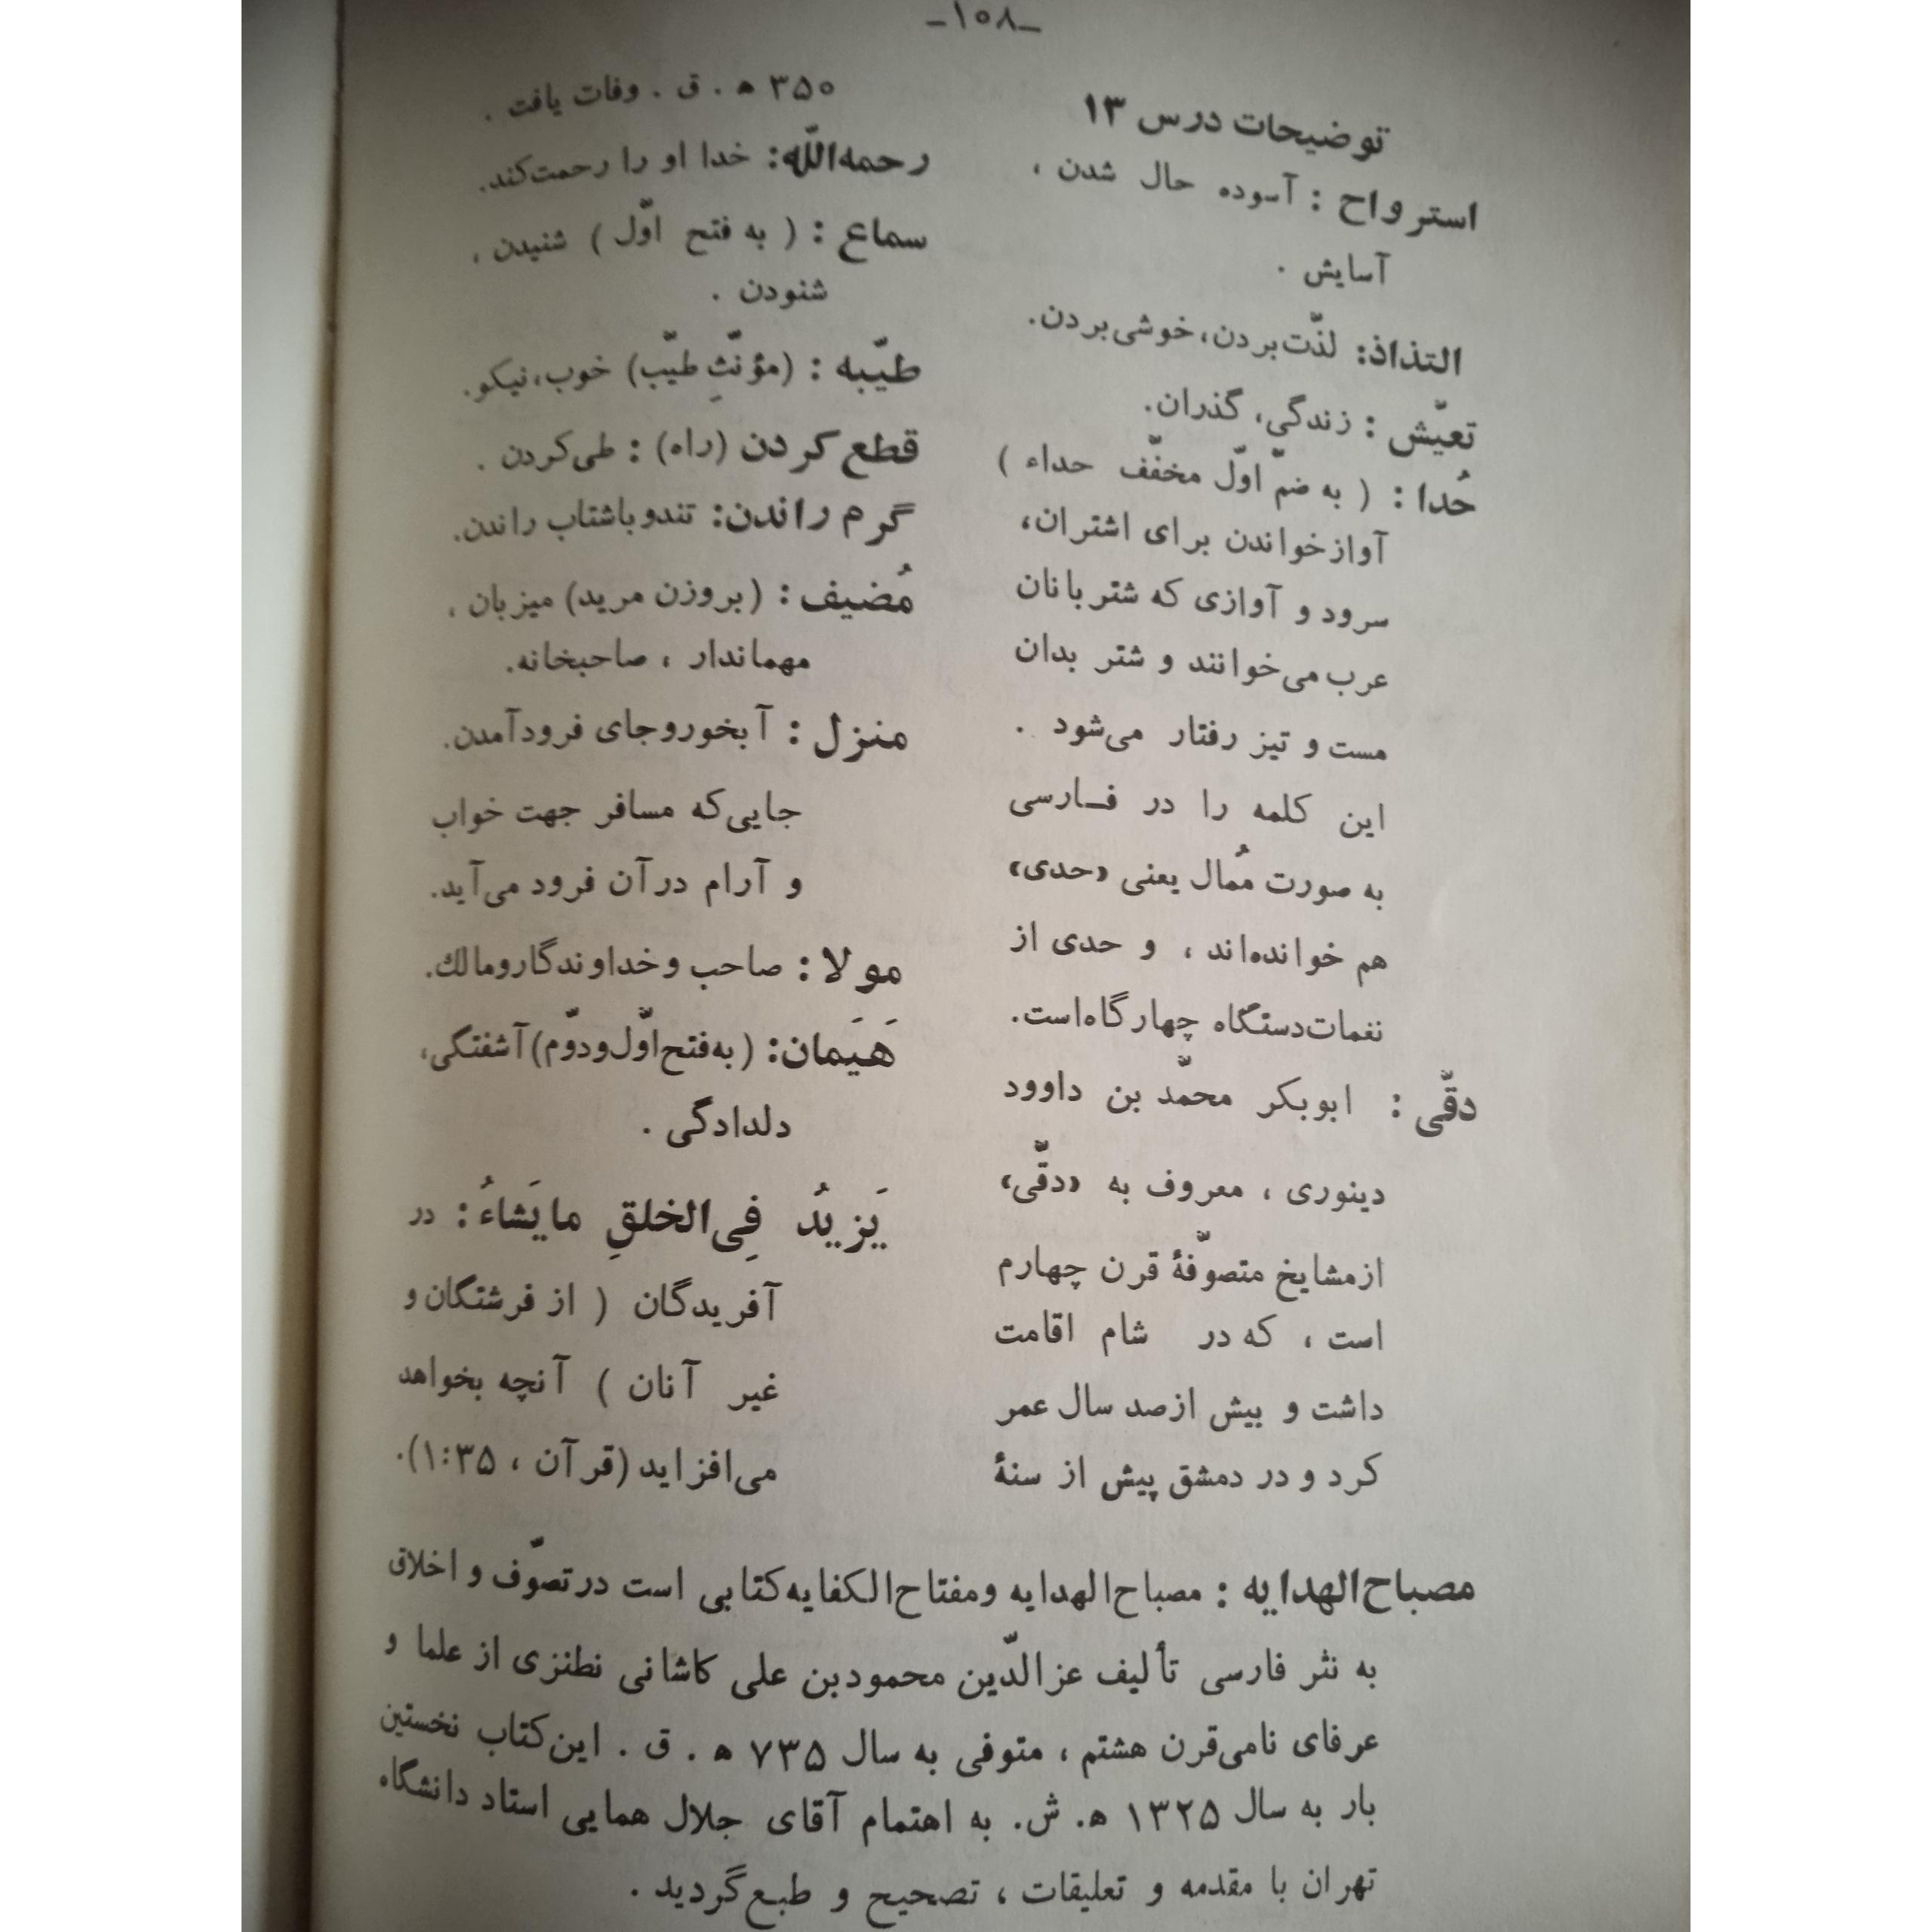 -۱۰۸-
توضیحات درس ۱۳
استرواح : آسوده حال شدن ،
آسایش .
التذاذ: لذّت‌بردن، خوشی‌بردن.
تعیّش : زندگی، گذران.
حُدا : ( به ضمّ اوّل مخفّف حداء )
آواز خواندن برای اشتران،
سرود و آوازی که شتربانان
عرب می‌خوانند و شتر بدان
مست و تیز رفتار می‌شود .
این کلمه را در فارسی
به صورت مُمال یعنی «حدی»
هم خوانده‌اند ، و حدی از
نغمات‌دستگاه چهارگاه‌است.
دقّی : ابوبکر محمّد بن داوود
دینوری ، معروف به «دقّی»
ازمشایخ متصوّفهٔ قرن چهارم
است ، که در شام اقامت
داشت و بیش ازصد سال عمر
کرد و در دمشق پیش از سنهٔ
۳۵۰ ه . ق . وفات یافت .
رحمه‌اللّه: خدا او را رحمت‌کند.
سماع : ( به فتح اوّل ) شنیدن ،
شنودن .
طیّبه : (مؤنّثِ طیّب) خوب،نیکو.
قطع کردن (راه) : طی‌کردن .
گرم راندن: تندوباشتاب راندن.
مُضیف : (بروزن مرید) میزبان ،
مهماندار ، صاحبخانه.
منزل : آبخوروجای فرودآمدن.
جایی‌که مسافر جهت خواب
و آرام درآن فرود می‌آید.
مولا : صاحب و خداوندگارومالك.
هَیَمان: (به‌فتح‌اوّل‌ودوّم)آشفتگی،
دلدادگی .
یَزیدُ فِی‌الخلقِ مایَشاءُ : در
آفریدگان ( از فرشتگان و
غیر آنان ) آنچه بخواهد
می‌افزاید (قرآن ، ۱:۳۵).
مصباح‌الهدایه : مصباح‌الهدایه ومفتاح‌الکفایه‌کتابی است درتصوّف و اخلاق
به نثر فارسی تألیف عزالدّین محمودبن علی کاشانی نطنزی از علما و
عرفای نامی‌قرن هشتم ، متوفی به سال ۷۳۵ ه . ق . این‌کتاب نخستین
بار به سال ۱۳۲۵ ه. ش. به اهتمام آقای جلال همایی استاد دانشگاه
تهران با مقدمه و تعلیقات ، تصحیح و طبع‌گردید .